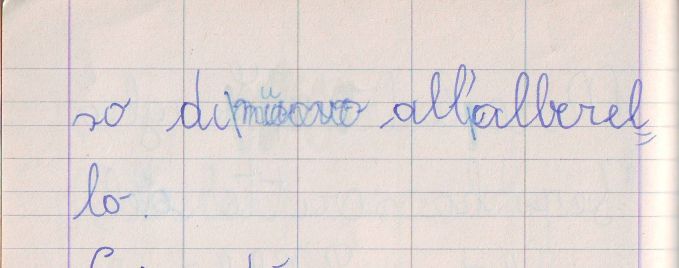 so di nuovo all'alberel=
lo.